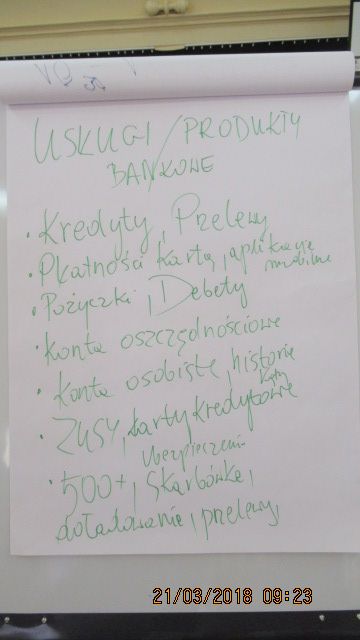 USŁUGI / PRODUKTY
BANKOWE
· Kredyty, Przelewy
· Płatności kartą, aplikacje
mobilne
· Pożyczki, Debety
· Konta oszczędnościowe
· Konta osobiste, historie
· ZUSY, karty kredytowe
Ubezpieczenia
· 500+, Skarbówka,
doładowanie, przelewy,
21/03/2018 09:23